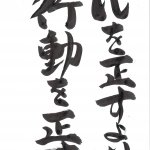 を正すよ
行動を正